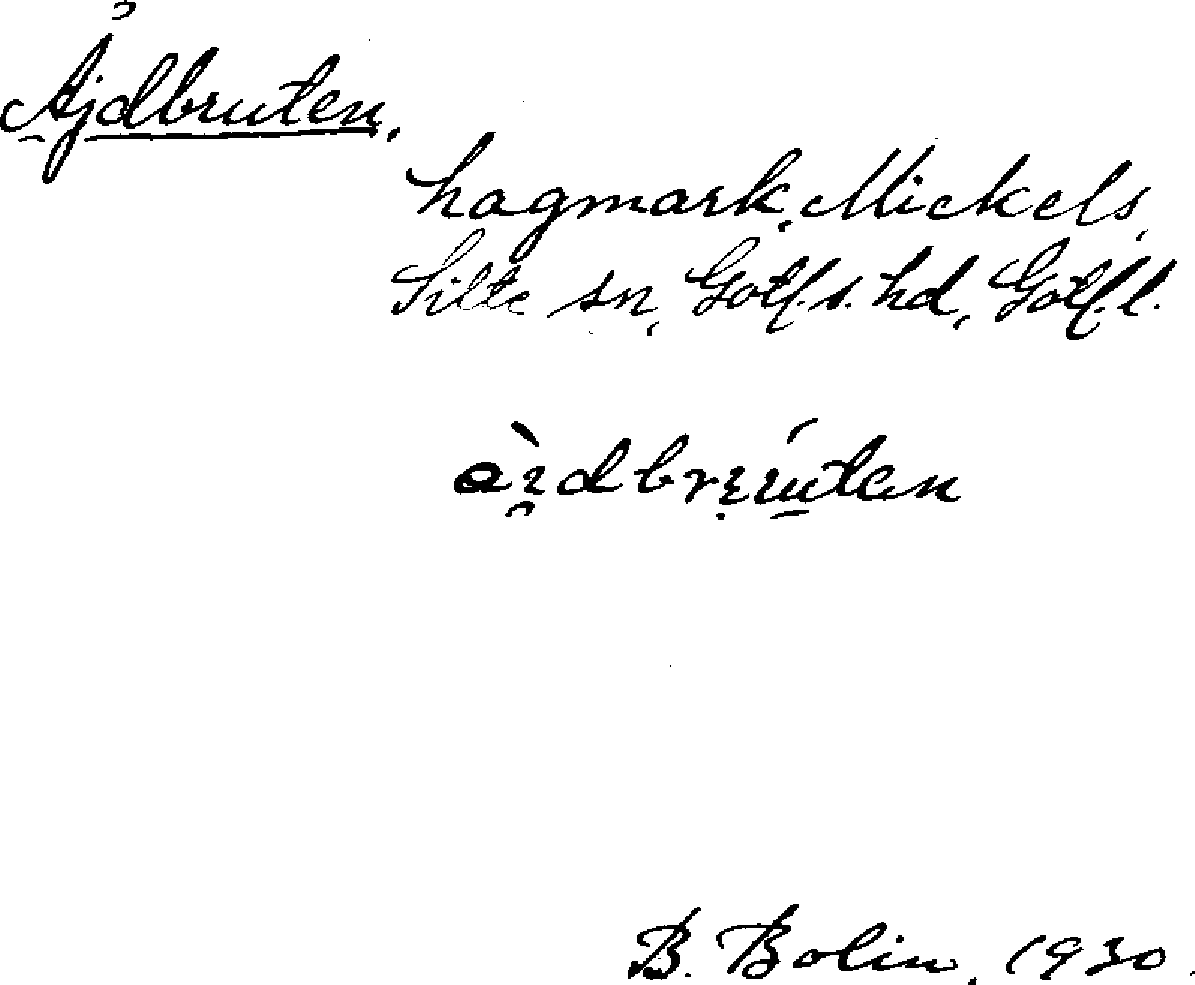 Åjdbruten,
hagmark, Mickels,
Silte sn, Gotl.s. hd, Gotl. l.
B. Bolin, 1930.